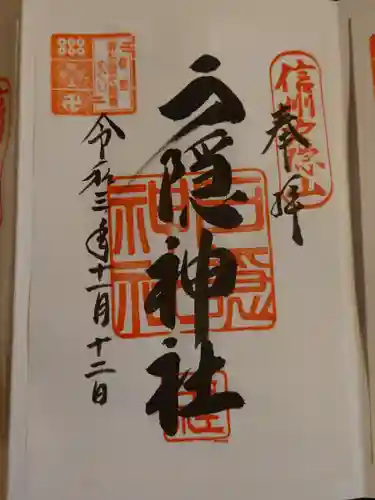 信州戸隠山
奉拝
戸隠神社
戸隠神社
令和三年十一月十二日